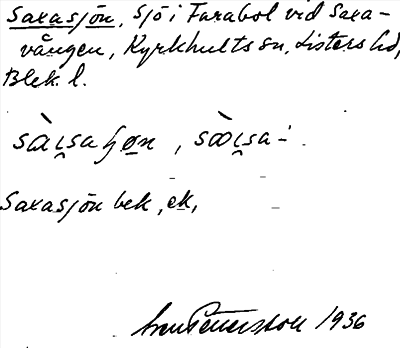 Saxasjön, Sjö i Farabol vid Saxa-
vången, Kyrkhults sn, Listers hd,
Blek. l.
sàı̯saɧøn, sòı̯sa-.
Saxasjön bek, ek,
Sven Pettersson 1936